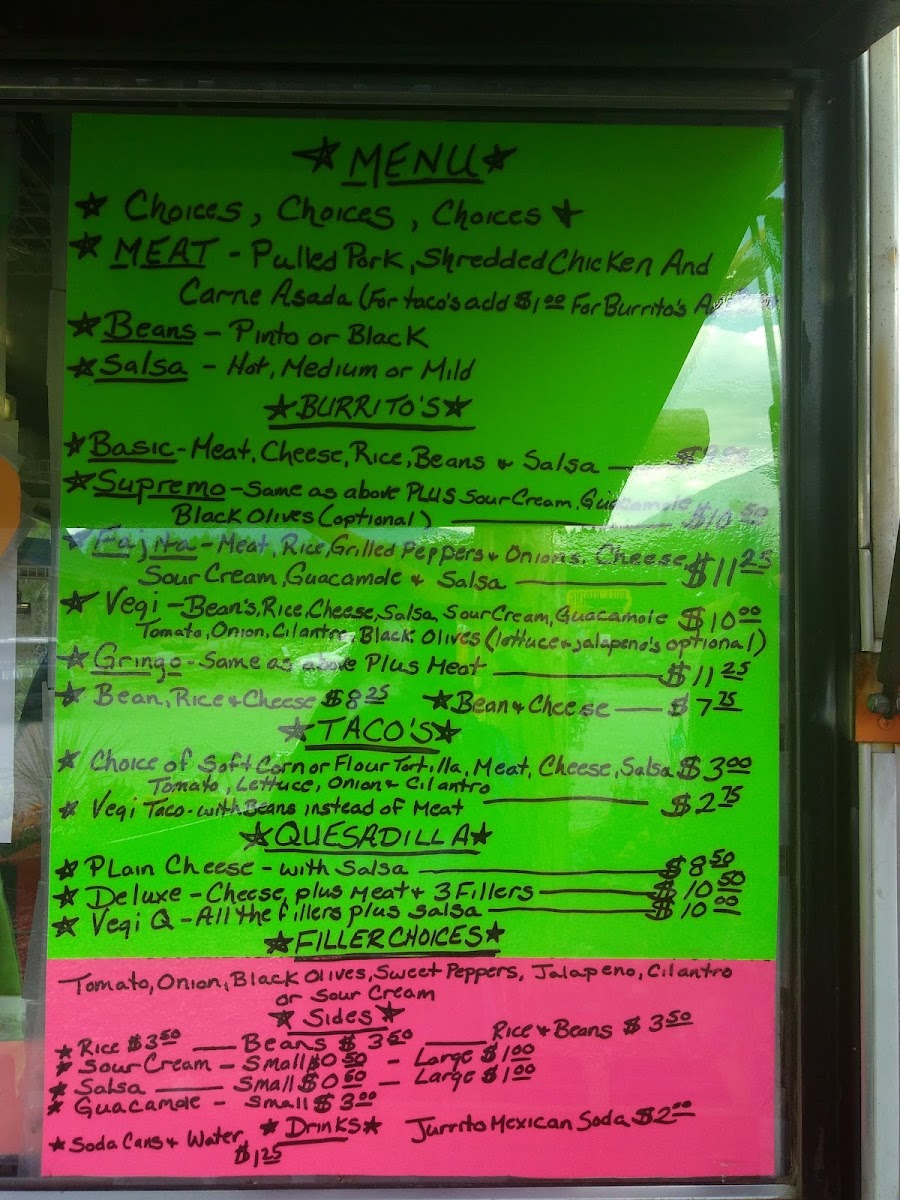 ★ MENU ★
★ Choices, Choices, Choices ★
★ MEAT - Pulled Pork, Shredded Chicken And
Carne Asada (For taco's add $1.00 For Burrito's
★ Beans - Pinto or Black
★ Salsa - Hot, Medium or Mild
★ BURRITO'S ★
★ Basic - Meat, Cheese, Rice, Beans & Salsa —
★ Supremo - Same as above PLUS Sour Cream, Guacamole
Black Olives (optional) — $10.50
★ Fajita - Meat, Rice, Grilled Peppers & Onions, Cheese $11.25
Sour Cream, Guacamole & Salsa —
★ Vegi - Bean's, Rice, Cheese, Salsa, Sour Cream, Guacamole $10.00
Tomato, Onion, Cilantro, Black Olives (lottuce & jalapeno's optional)
★ Gringo - Same as above Plus Meat — $11.25
★ Bean, Rice & Cheese $8.25 ★ Bean & Cheese — $7.75
★ TACO'S ★
★ Choice of Soft Corn or Flour Tortilla, Meat, Cheese, Salsa $3.00
Tomato, Lettuce, Onion & Cilantro
★ Vegi Taco - with Beans instead of Meat — $2.75
★ QUESADILLA ★
★ Plain Cheese - with Salsa — $8.50
★ Deluxe - Cheese, plus Meat & 3 Fillers — $10.50
★ Vegi Q - All the fillers plus Salsa — $10.00
★ FILLER CHOICES ★
Tomato, Onion, Black Olives, Sweet Peppers, Jalapeno, Cilantro
or Sour Cream
★ Sides ★
★ Rice $3.50 — Beans $3.50 — Rice & Beans $3.50
★ Sour Cream - Small $0.50 - Large $1.00
★ Salsa — Small $0.60 - Large $1.00
★ Guacamole - Small $3.00
★ Drinks ★
★ Soda Cans & Water $1.25 Jurrito Mexican Soda $2.00